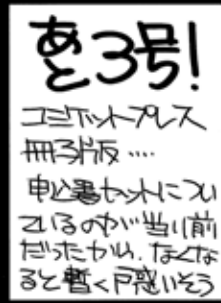 あと3号!
コミケットプレス
冊子版‥‥
申込書セットについ
ているのが当り前
だったから、なくな
ると暫く戸惑いそう